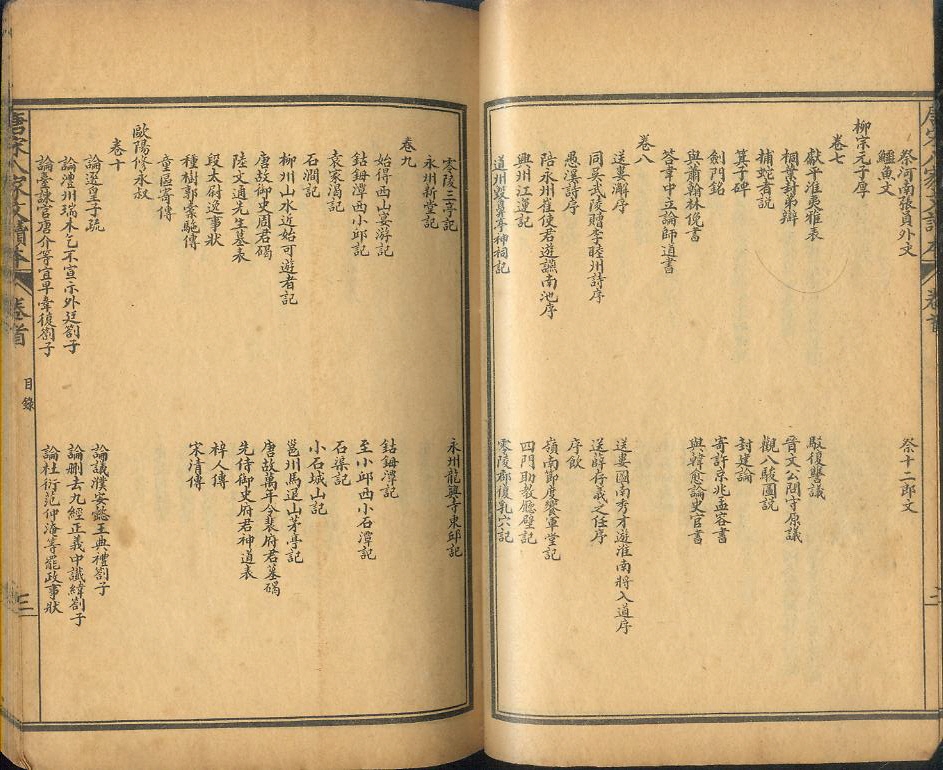 祭河南張員外文
祭十二郎文
鱷魚文
柳宗元子厚
卷七
獻平淮夷雅表
駁復讐議
桐葉封弟辯
晉文公問守原議
捕蛇者說
觀八駿圖說
箕子碑
封建論
劍門銘
寄許京兆孟容書
與蕭翰林俛書
與韓愈論史官書
答韋中立論師道書
卷八
送婁澥序
送婁圖南秀才遊淮南將入道序
同吳武陵贈李睦州詩序
送薛存義之任序
愚溪詩序
序飲
陪永州崔使君遊讌南池序
嶺南節度饗軍堂記
興州江運記
四門助教廳壁記
道州毀鼻亭神祠記
零陵郡復乳穴記
零陵三亭記
永州龍興寺東邱記
永州新堂記
卷九
始得西山宴游記
鈷鉧潭記
鈷鉧潭西小邱記
至小邱西小石潭記
袁家渴記
石渠記
石澗記
小石城山記
柳州山水近始可遊者記
邕川馬退山茅亭記
唐故御史周君碣
唐故萬年令裴府君墓碣
陸文通先生墓表
先侍御史府君神道表
段太尉逸事狀
梓人傳
種樹郭橐駞傳
宋清傳
童區寄傳
歐陽修永叔
卷十
論選皇子疏
論議濮安懿王典禮劄子
論澧州瑞木乞不宣示外廷劄子
論刪去九經正義中讖緯劄子
論臺諫官唐介等宜早牽復劄子
論杜衍范仲淹等罷政事狀
唐宋八家文讀本 卷首
目錄
三